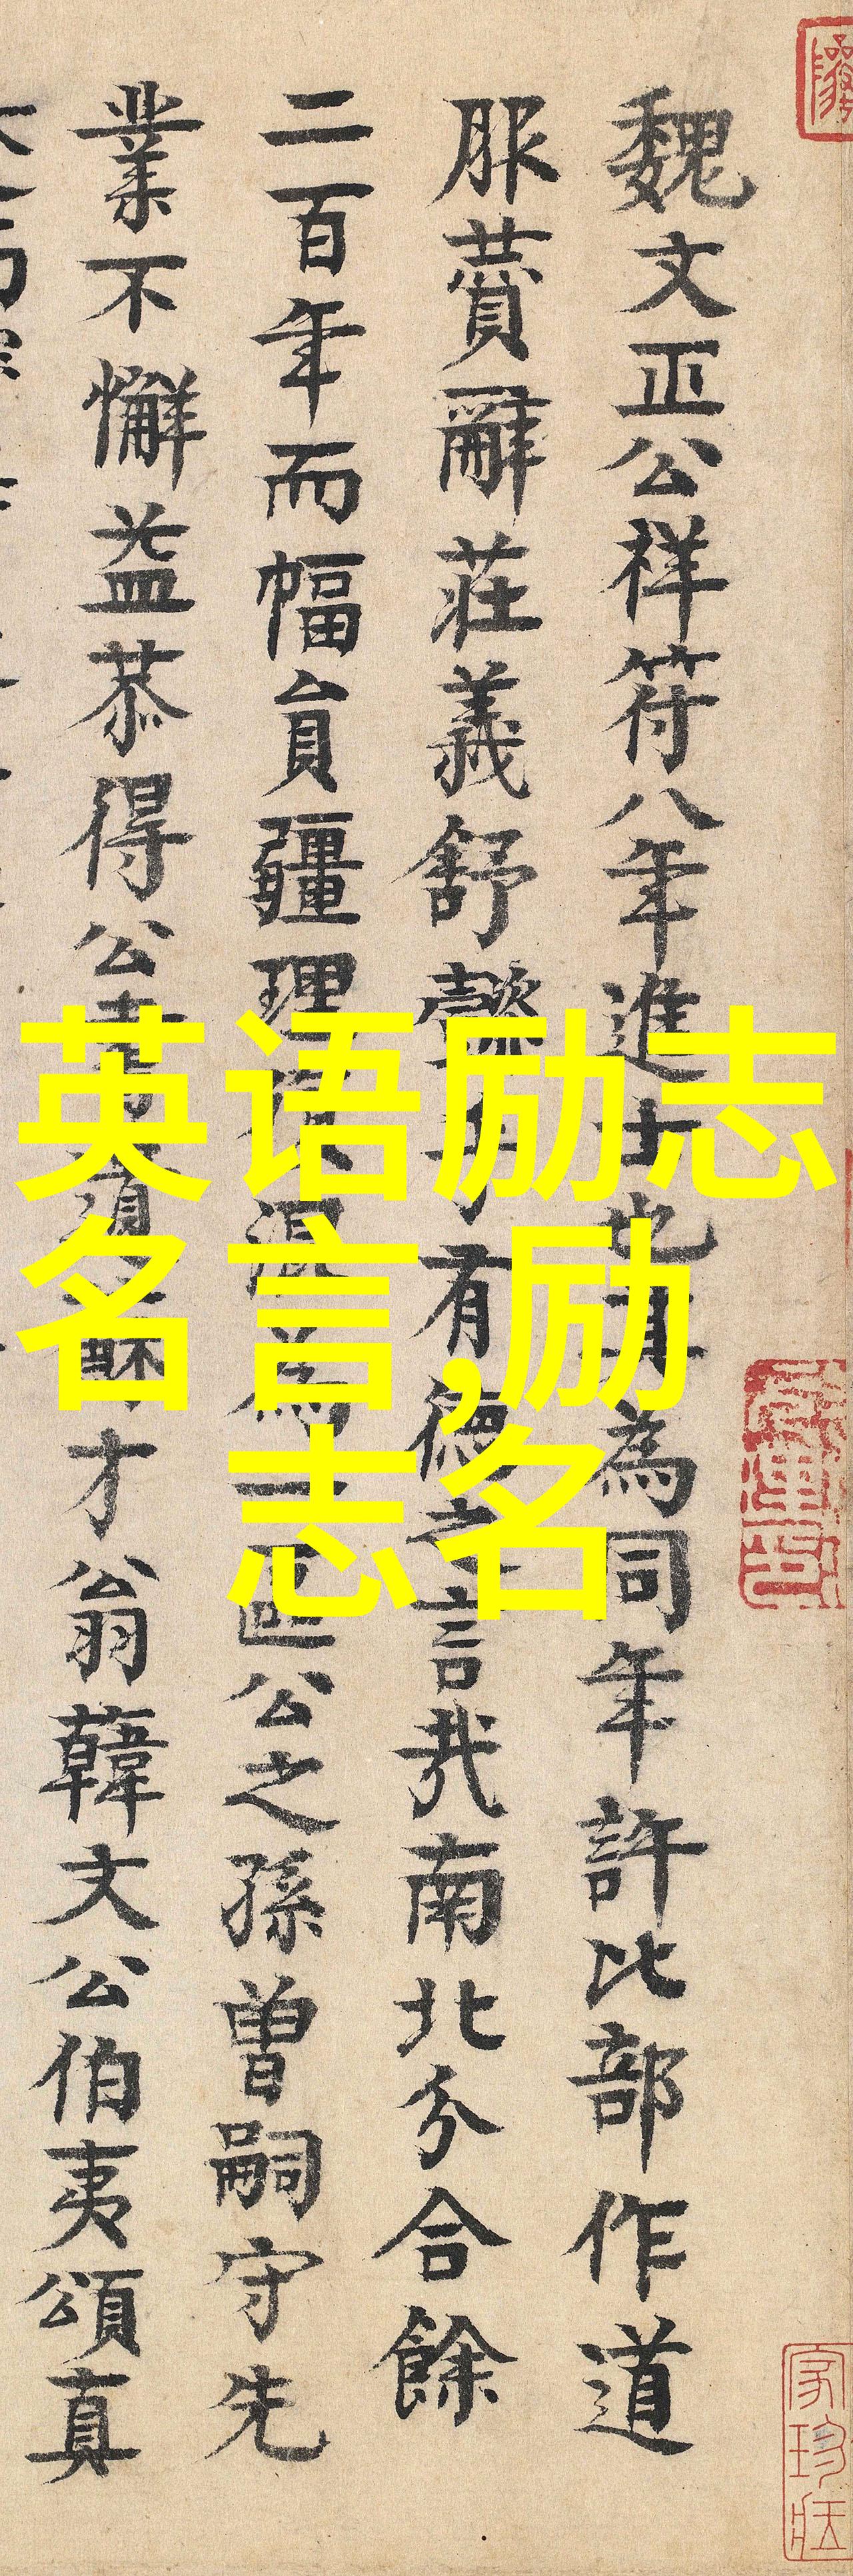 英语励志
名言,励
志名
魏文正公祥符八年進士也其為同年許比部作道
服薲辭莊義舒懿乎有德之言哉南北分合餘
二百年而幅員疆理混為一區公之孫曾嗣守先
業不懈益恭得公書才翁韓文公伯夷頌真